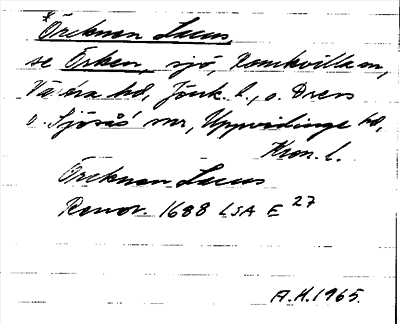 *Örcknen Lacus,
se Örken, sjö, Ramkvilla sn,
Västra hd, Jönk. l., o. Drevs
o. Sjösås snr, Uppvidinge hd,
Kron. l.
Örcknen Lacus
Renov. 1688 LSA E 27
A.H. 1965.